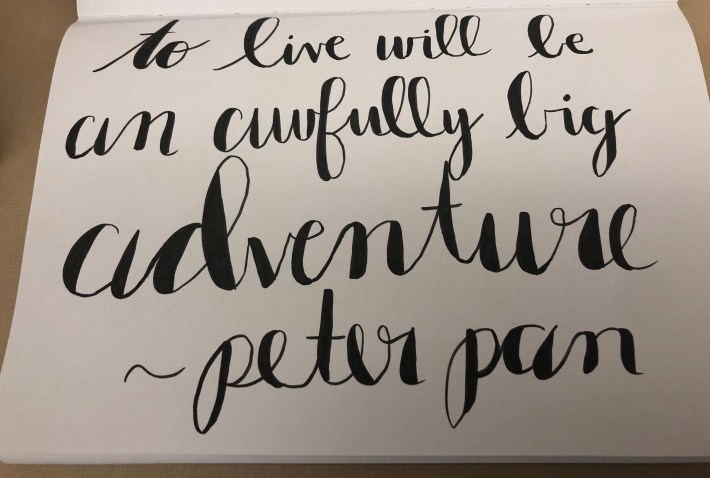 to live will be
an awfully big
adventure
~peter pan